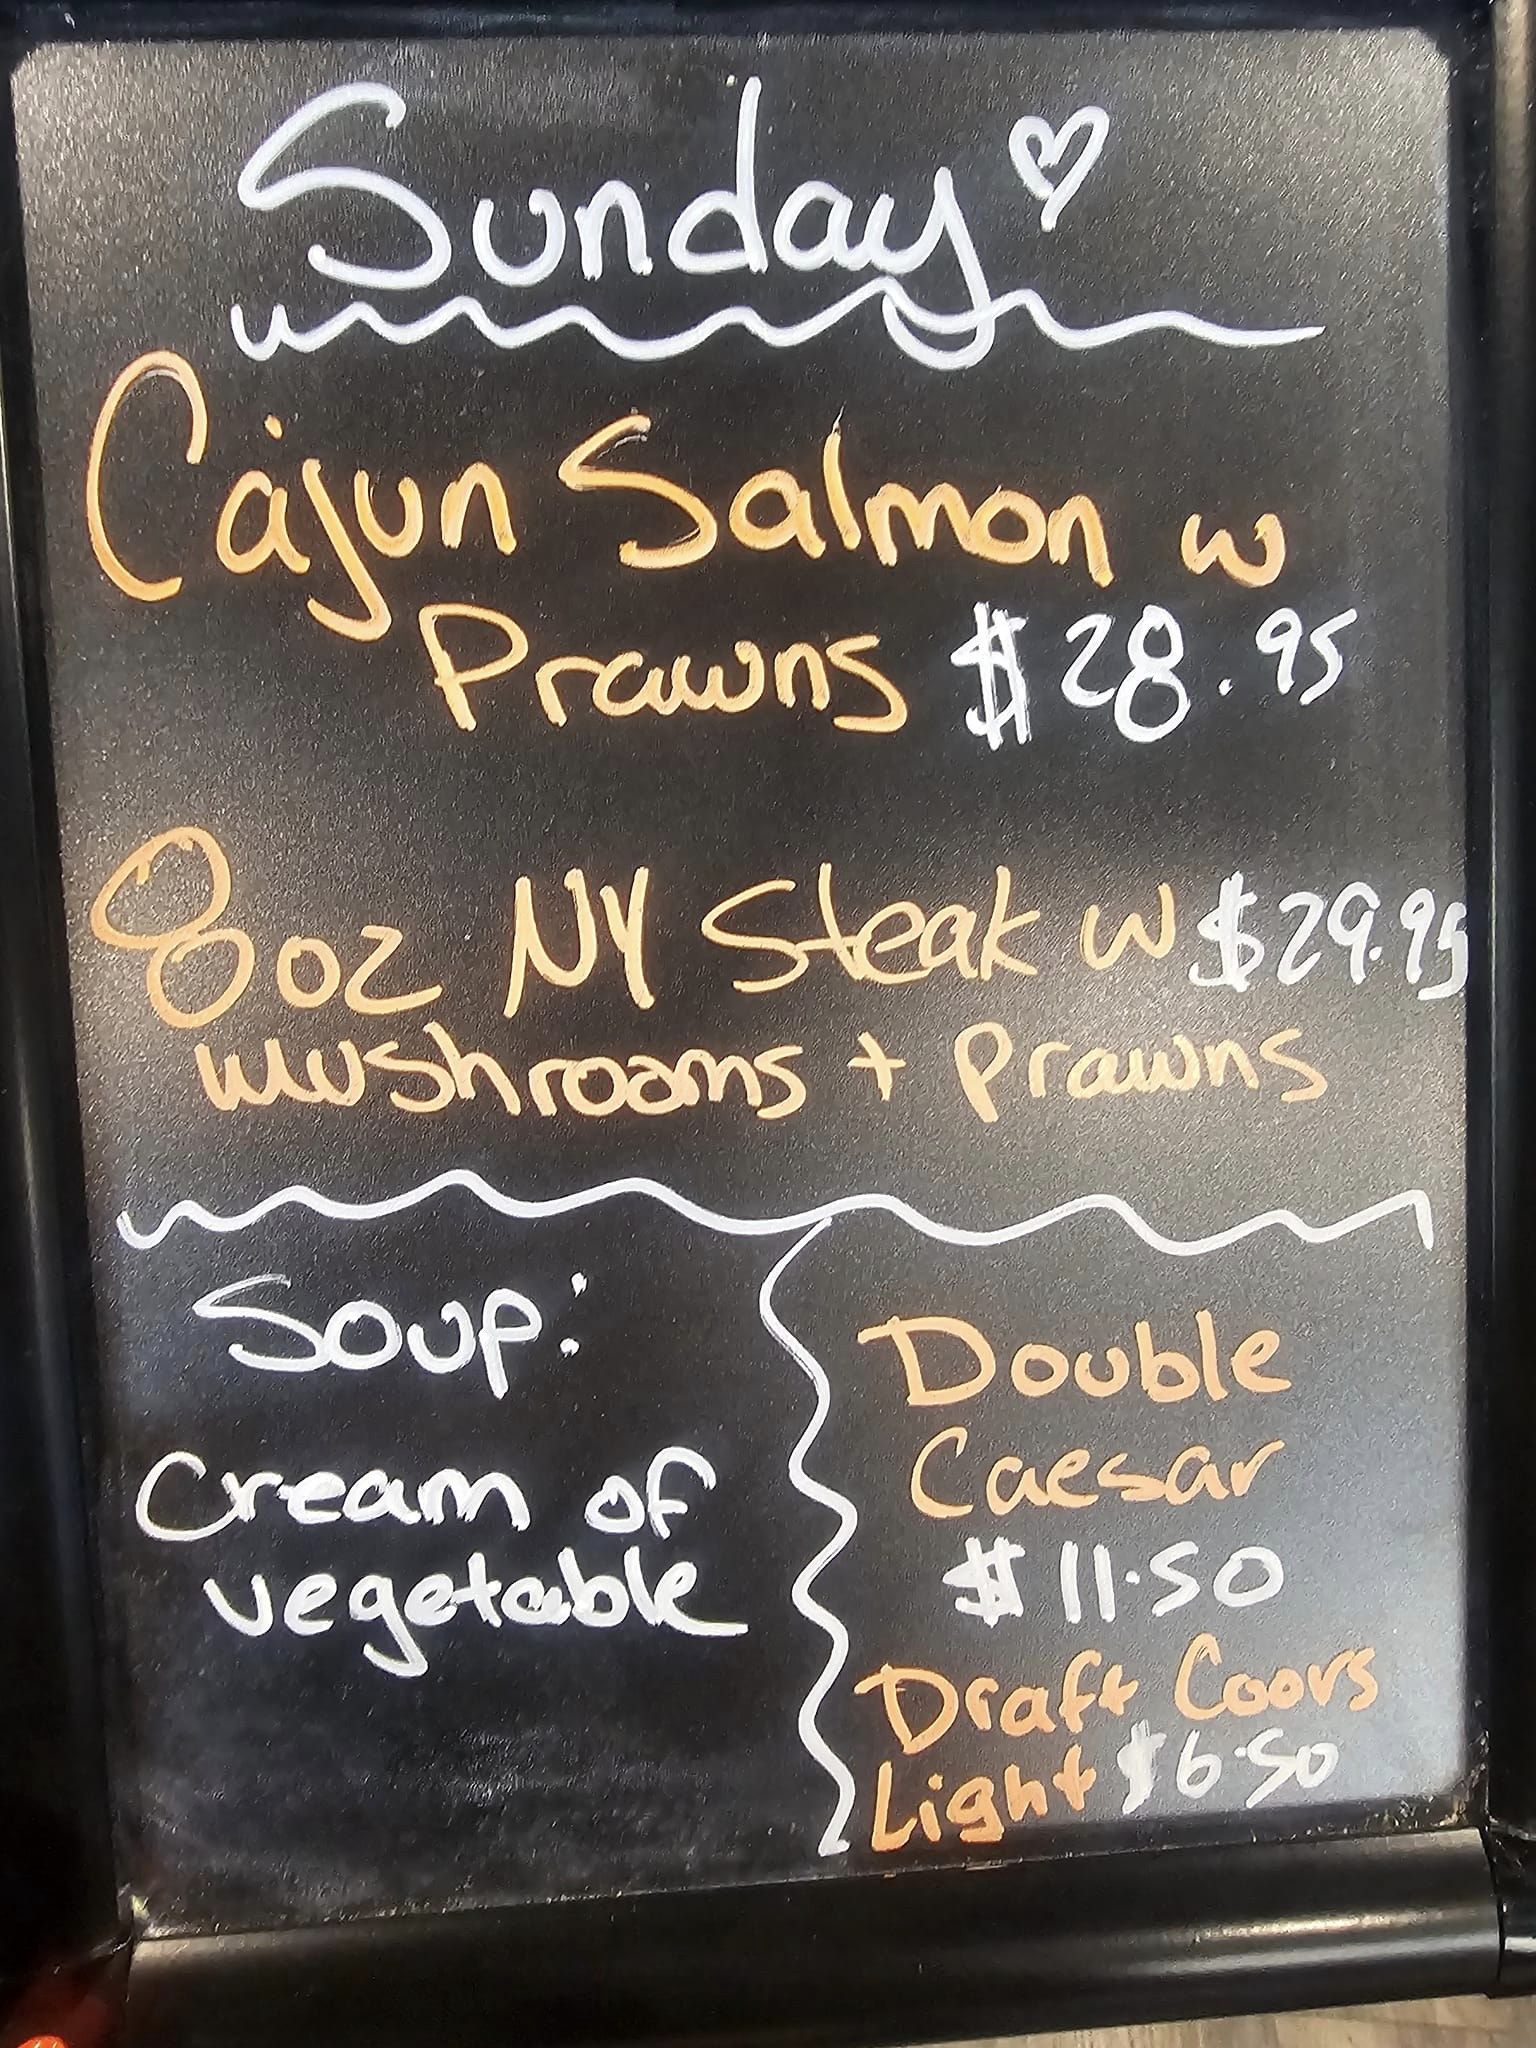 Sunday ♡
Cajun Salmon w
Prawns $28.95
8oz NY Steak w $29.95
mushrooms + prawns
Soup:
Cream of
vegetable
Double
Caesar
$11.50
Draft Coors
Light $6.50